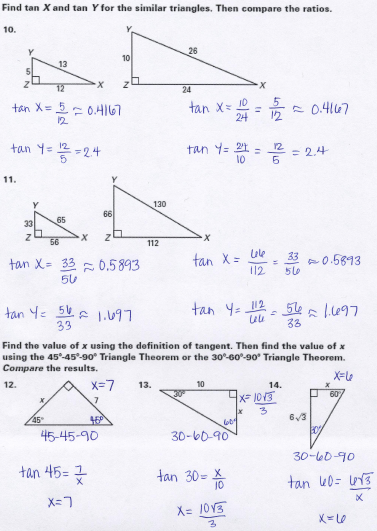 Find tan X and tan Y for the similar triangles. Then compare the ratios.
10.
Y
13
5
Z
12
X
Y
26
10
Z
24
X
tan X = 5/12 ≈ 0.4167
tan X = 10/24 = 5/12 ≈ 0.4167
tan Y = 12/5 = 2.4
tan Y = 24/10 = 12/5 = 2.4
11.
Y
65
33
Z
56
X
Y
130
66
Z
112
X
tan X = 33/56 ≈ 0.5893
tan X = 66/112 = 33/56 ≈ 0.5893
tan Y = 56/33 ≈ 1.697
tan Y = 112/66 = 56/33 ≈ 1.697
Find the value of x using the definition of tangent. Then find the value of x
using the 45°-45°-90° Triangle Theorem or the 30°-60°-90° Triangle Theorem.
Compare the results.
12.
x=7
x
7
45°
45°
45-45-90
tan 45 = 7/x
x=7
13.
10
30°
x = 10√3/3
x
60°
30-60-90
tan 30 = x/10
x = 10√3/3
14.
x=6
x
60°
6√3
30°
30-60-90
tan 60 = 6√3/x
x=6